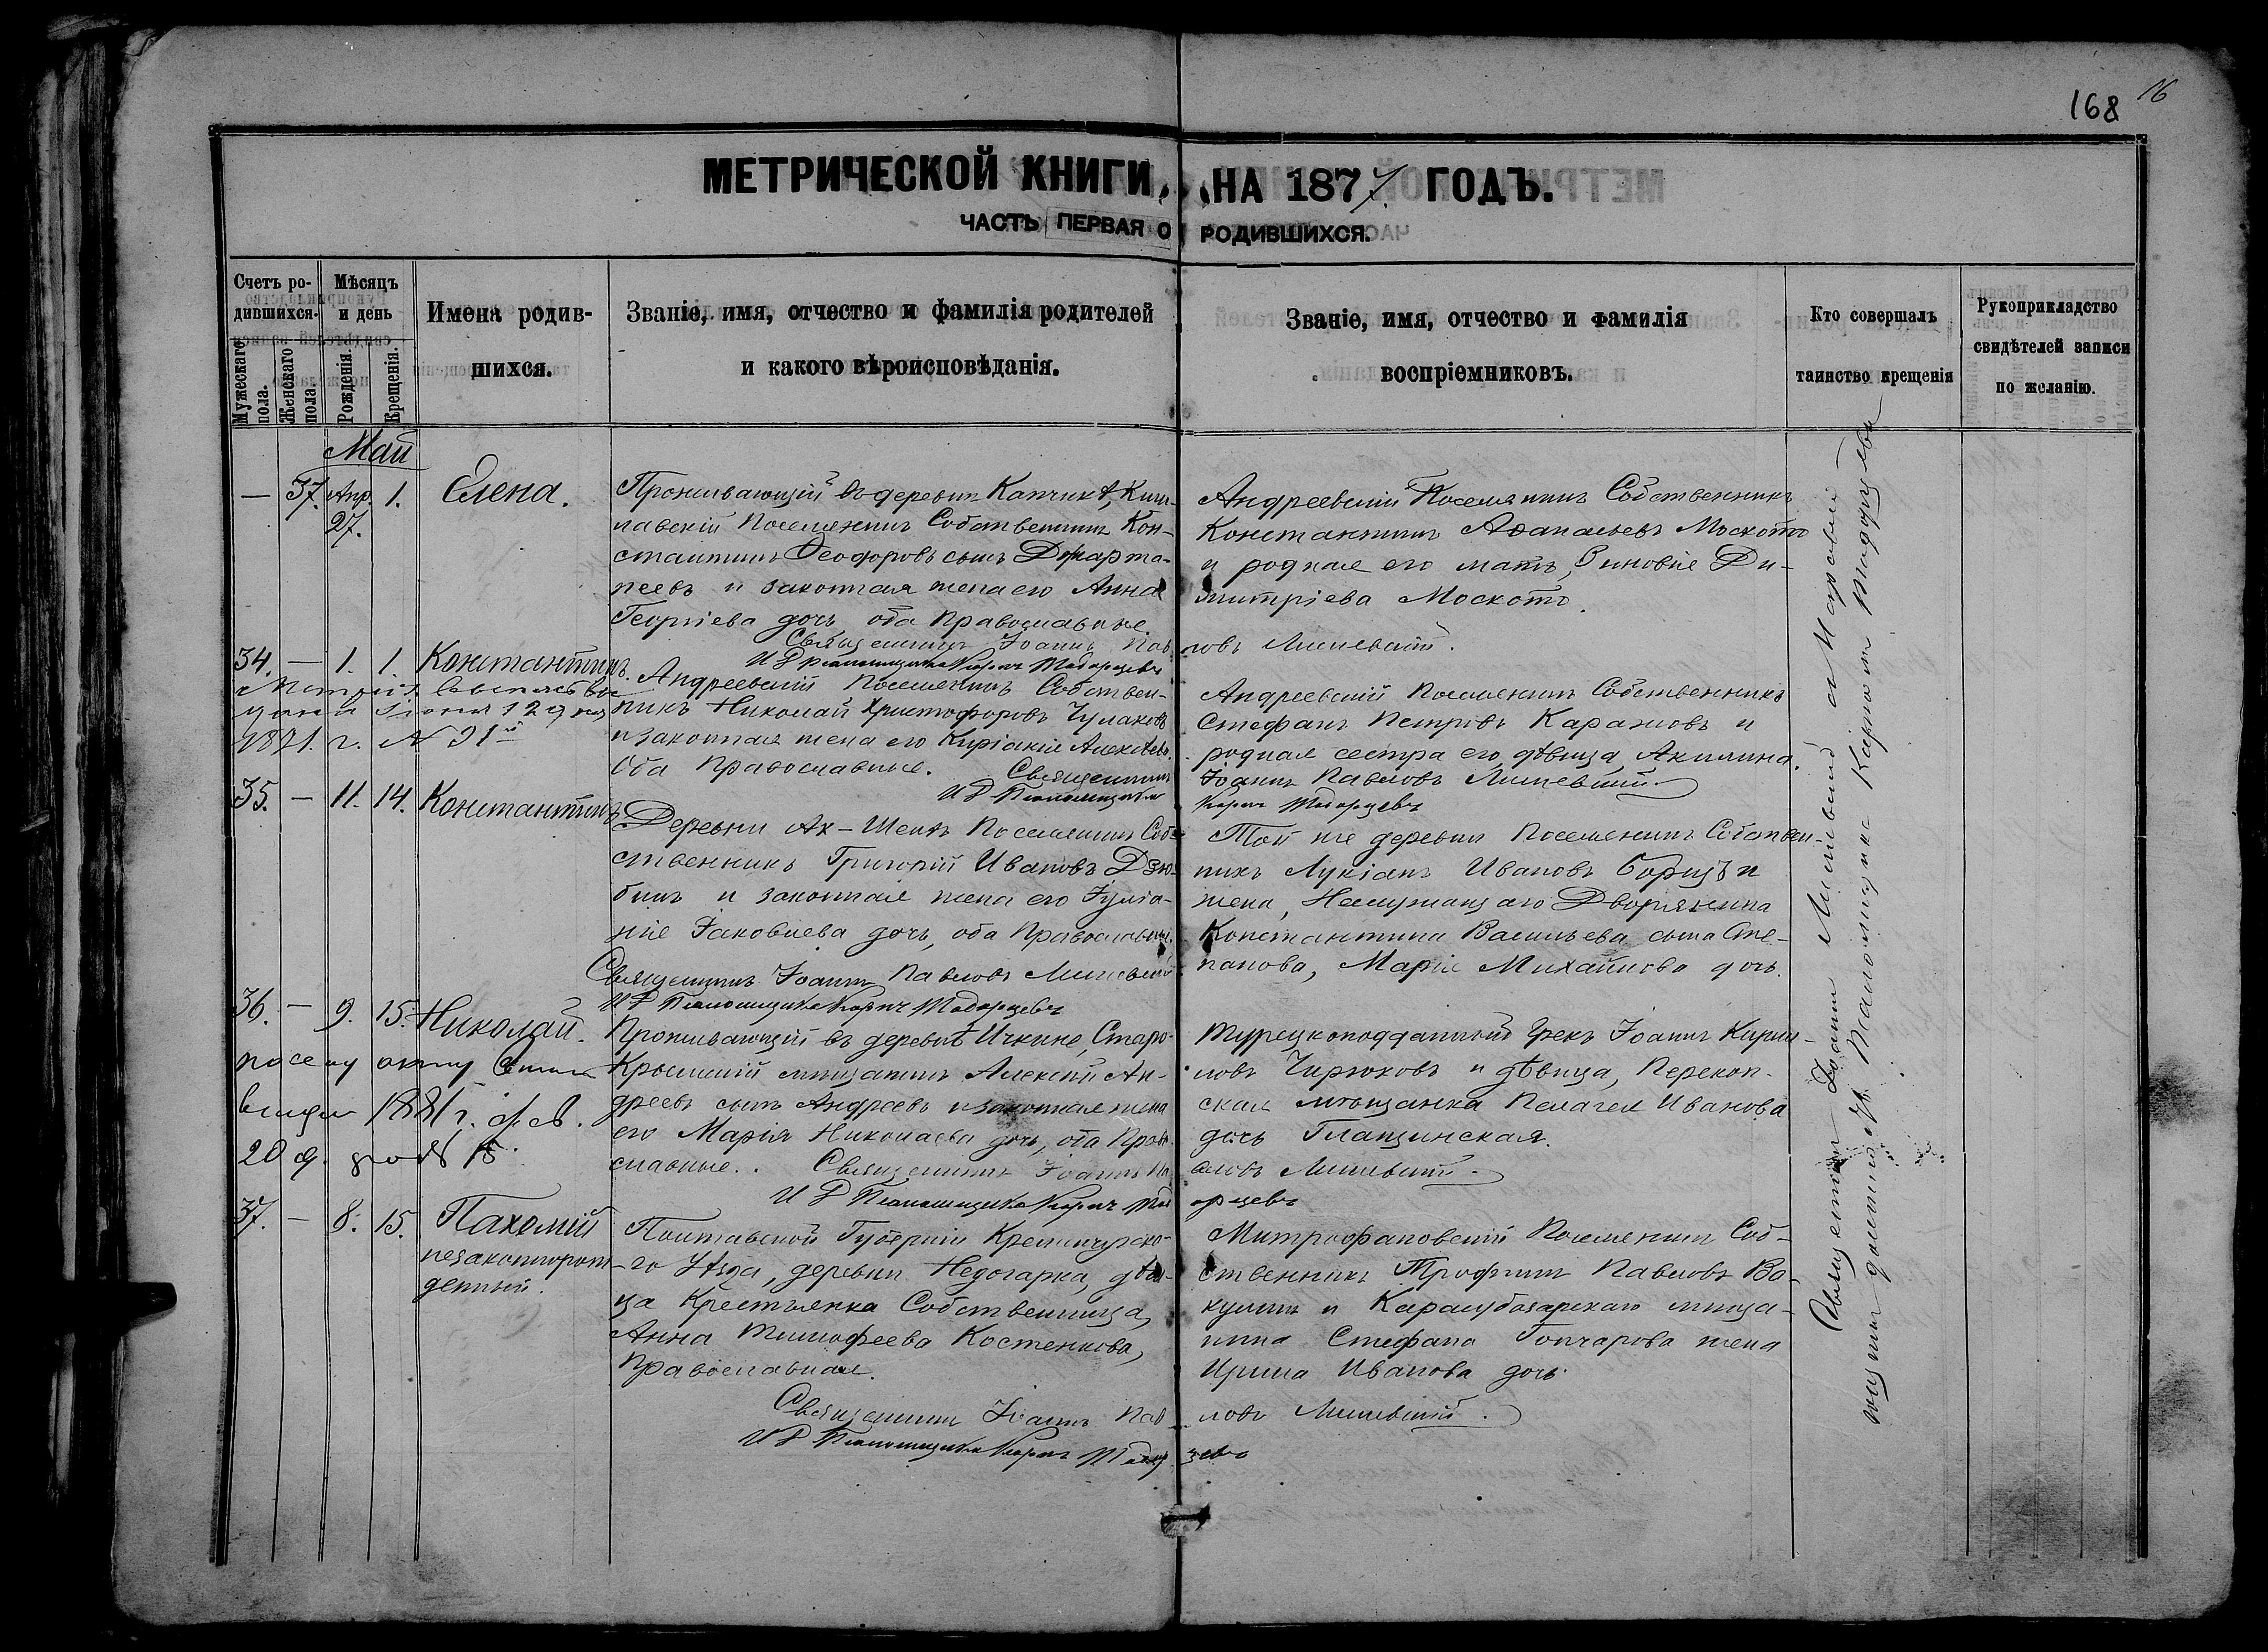 168 16
МЕТРИЧЕСКОЙ КНИГИ, НА 1877 ГОДЪ.
ЧАСТЬ ПЕРВАЯ О РОДИВШИХСЯ.
Счетъ ро-
дившихся.
Мужескаго
пола.
Женскаго
пола.
Мѣсяцъ
и день
Рожденія.
Крещенія.
Имена родив-
шихся.
Званіе, имя, отчество и фамилія родителей
и какого вѣроисповѣданія.
Званіе, имя, отчество и фамилія
воспріемниковъ.
Кто совершалъ
таинство крещенія
Рукоприкладство
свидѣтелей записи
по желанію.
Май
— 37. Апр. 27. 1. Елена.
Проживающій въ деревни
лавскій Поселянинъ Собственникъ Кон-
стантинъ Ѳеодоровъ сынъ
и законная жена его Анна
Георгіева дочь, оба Православные.
Священникъ Іоаннъ Павловъ
Андреевскій Поселянинъ Собственникъ
Константинъ Аѳанасьевъ Моското
и родная его мать, Зиновія Ди-
митріева Моското.
34. — 1. 1. Константинъ.
1881. г. № 31й
Андреевскій Поселянинъ Собствен-
никъ Николай Христофоровъ Чулаковъ
и законная жена его Киріакія Алексѣева.
Оба Православные. Священникъ
Іоаннъ Павловъ
Андреевскій Поселянинъ Собственникъ
Стефанъ Петровъ Каражовъ и
родная сестра его, дѣвица, Акилина.
35. — 11. 14. Константинъ
Деревни Ак-Шеихъ Поселянинъ Соб-
ственникъ Григорій Ивановъ Дзю-
бинъ и законная жена его Іуліа-
нія Іаковлева дочь, оба Православные.
Священникъ Іоаннъ Павловъ
Той же деревни Поселянинъ Собствен-
никъ Лукіанъ Ивановъ и
жена, Дворянина
Константина Васильева сына Сте-
панова, Марія Михайлова дочь.
36. — 9. 15. Николай.
1881 г.
20
Проживающій въ деревнѣ Ичкине, Старо-
Крымскій мещанинъ Алексій Ан-
дреевъ сынъ Андреевъ и законная жена
его Марія Николаева дочь, оба Право-
славные. Священникъ Іоаннъ Павловъ
Турецкоподданный Грекъ Іоаннъ Кирил-
ловъ Чирюковъ и дѣвица, Перекоп-
ская мѣщанка Пелагея Иванова
дочь Глащинская.
37. — 8. 15. Пахомій
незаконнорож-
денный.
Полтавской Губерніи Кременчугска-
го Уѣзда, деревни Недогарка, дѣви-
ца Крестьянка Собственница,
Анна Тимофеева Костенкова,
Православная.
Священникъ Іоаннъ Павловъ
Митрофановскій Поселянинъ Соб-
ственникъ Трофимъ Павловъ Ва-
кулинъ и Карасубазарскаго меща-
нина Стефана Гончарова жена
Ирина Иванова дочь.
Священникъ Іоаннъ